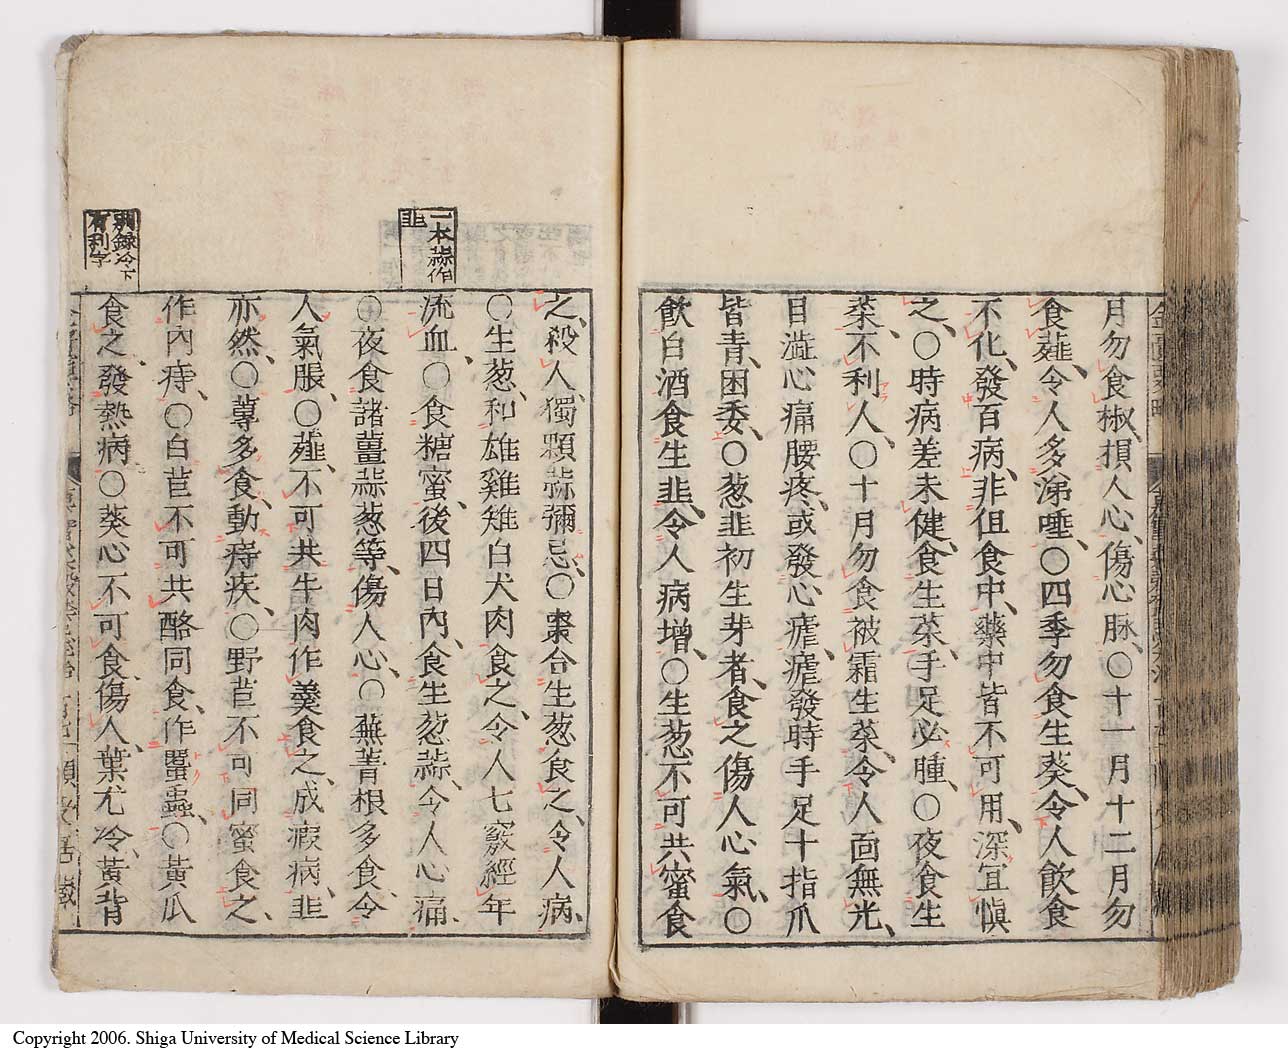 月勿食椒、損人心、傷心脉、○十一月十二月勿
食薤、令人多涕唾、○四季勿食生葵、令人飲食
不化、發百病、非但食中、藥中皆不可用、深宜愼
之、○時病差未健、食生菜、手足必腫、○夜食生
菜、不利人、○十月勿食被霜生菜、令人面無光、
目澁心痛腰疼、或發心瘧、瘧發時手足十指爪
皆青、困委、○葱韭初生芽者、食之傷人心氣、○
飲白酒食生韭、令人病増、○生葱不可共蜜食
之、殺人、獨顆蒜彌忌、○棗合生葱食之、令人病、
○生葱、和雄雞雉白犬肉食之、令人七竅經年
流血、○食糖蜜、後四日內、食生葱蒜、令人心痛、
○夜食諸薑蒜葱等、傷人心、○蕪菁根多食、令
人氣脹、○薤、不可共牛肉作羹食之、成瘕病、韭
亦然、○蓴多食、動痔疾、○野苣不可同蜜食之、
作內痔、○白苣不可共酪同食、作䘌蟲、○黃瓜
食之、發熱病、○葵心不可食、傷人、葉尤冷、黃背
一本蒜作
韭
別録冷下
有利字